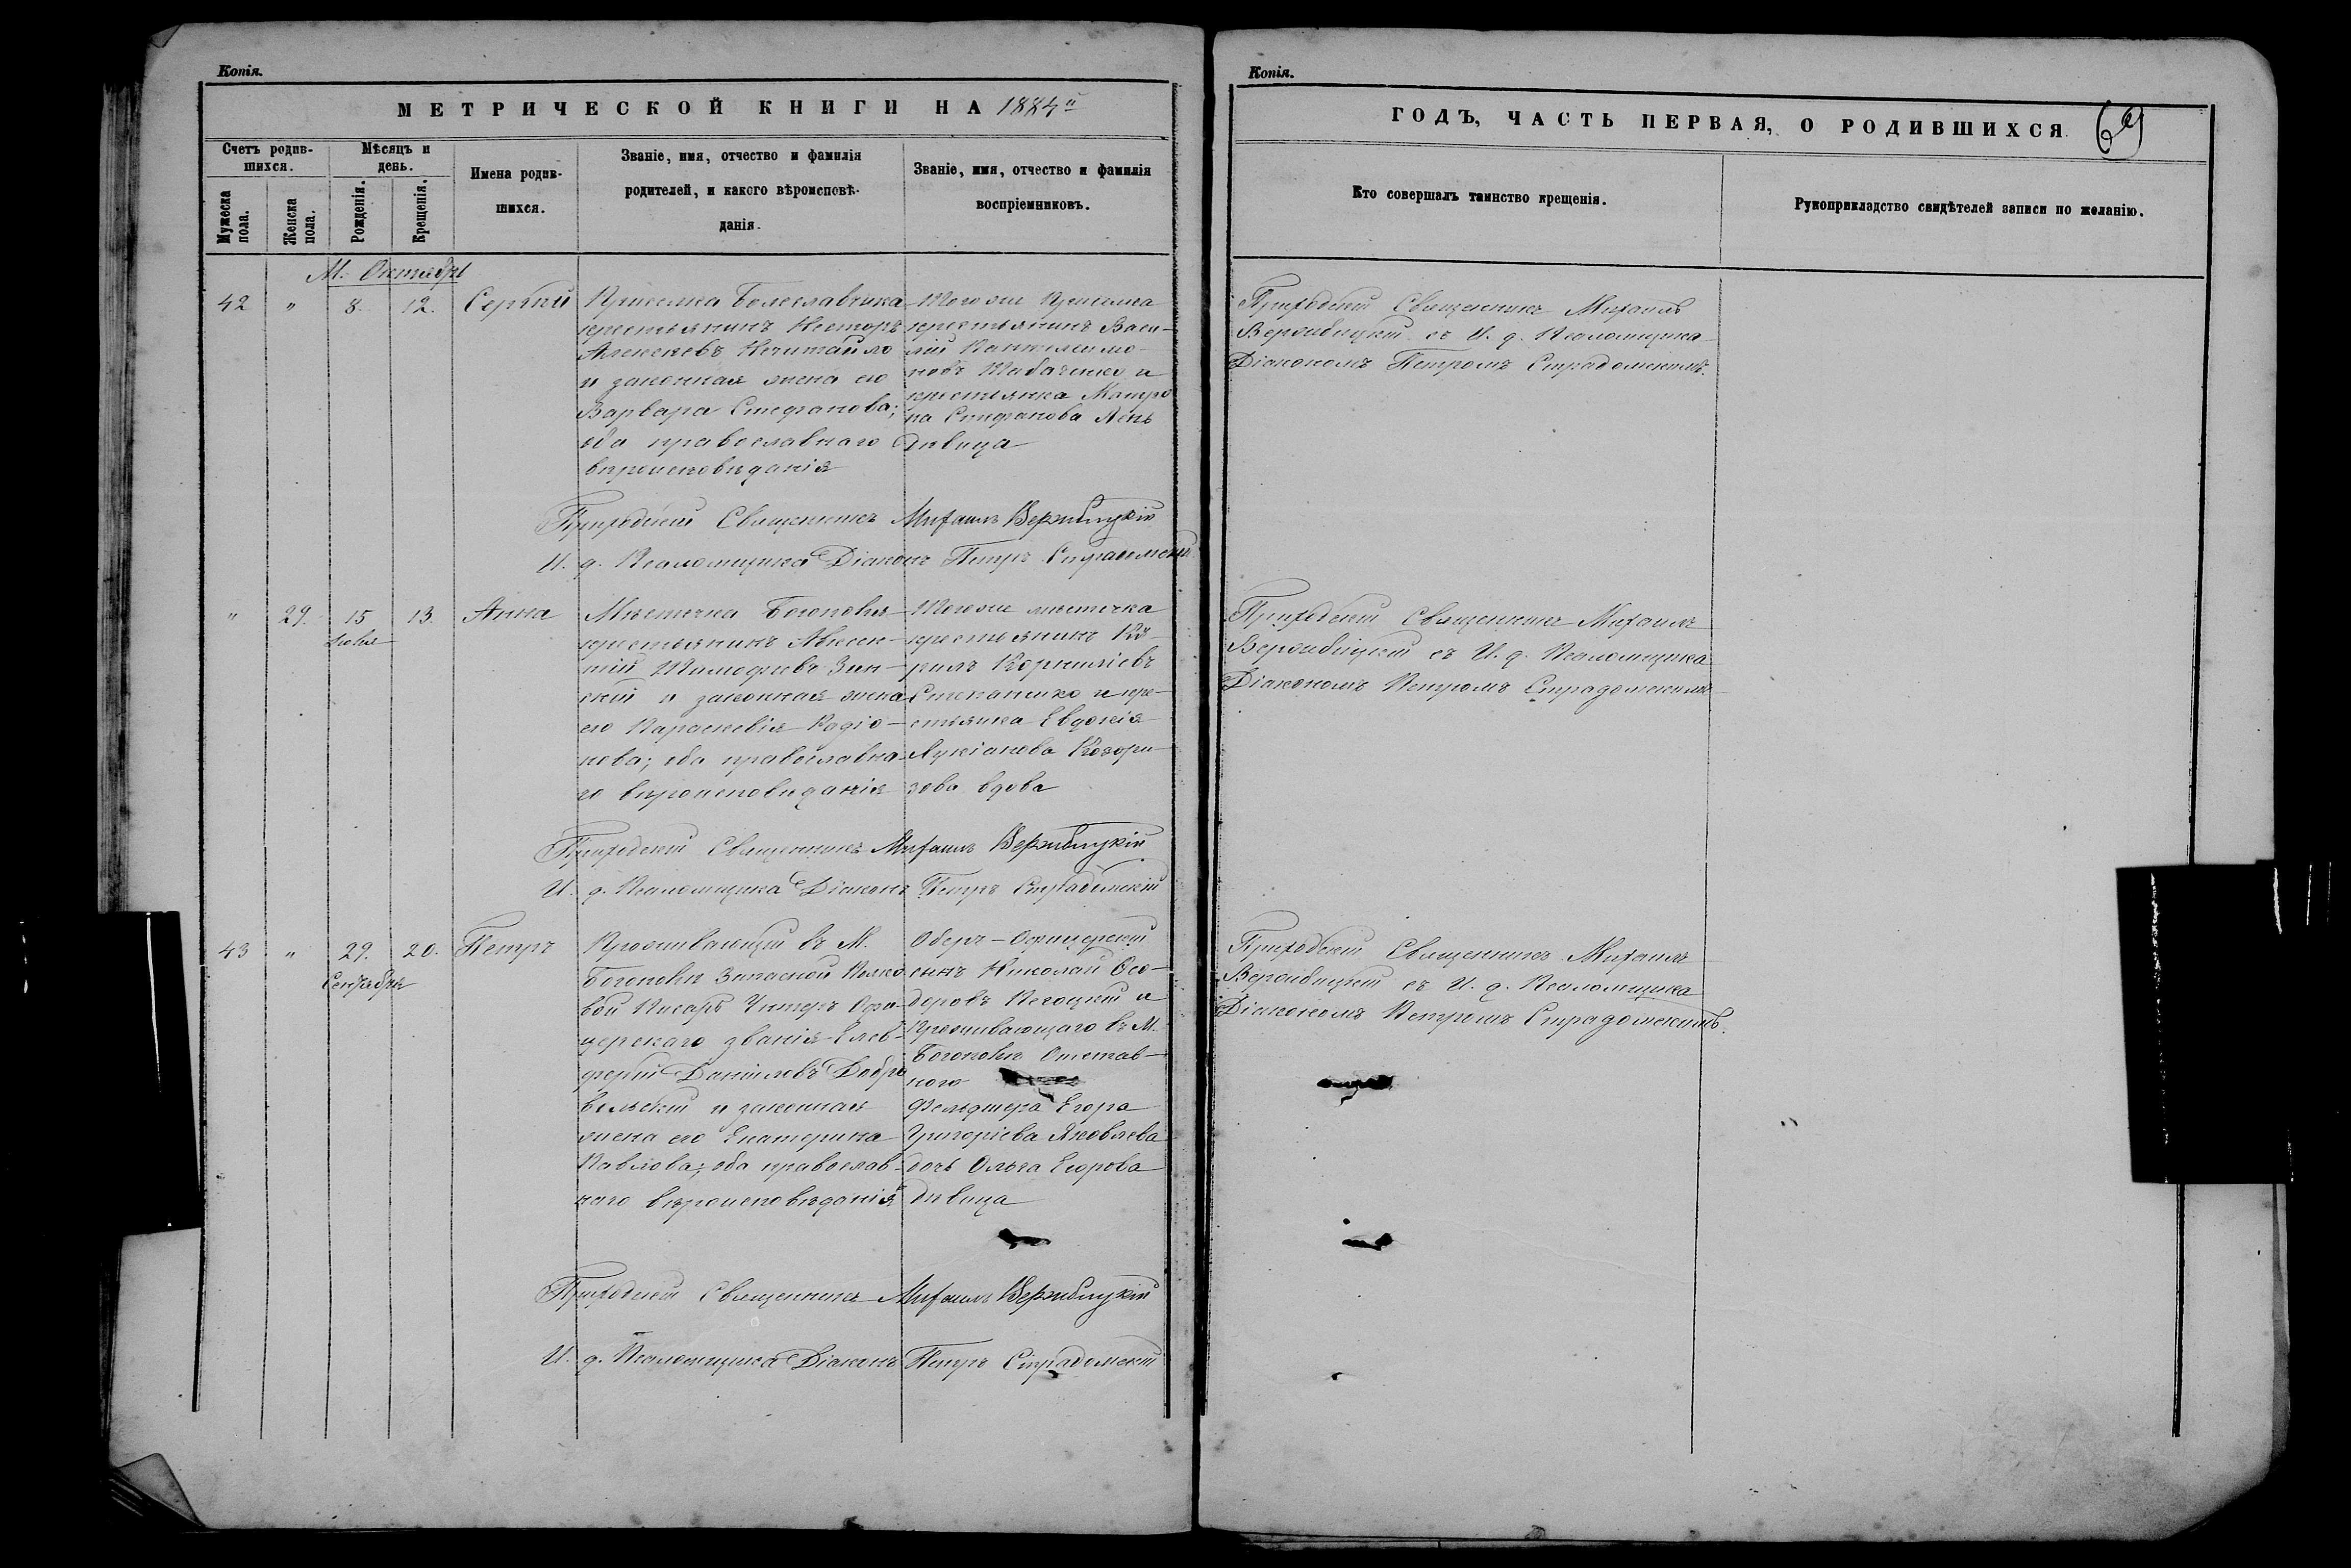 Копія.
МЕТРИЧЕСКОЙ КНИГИ НА 1884й
Счетъ родив-
шихся.
Мѣсяцъ и
день.
Мужеска
пола.
Женска
пола.
Рожденія.
Крещенія.
Имена родив-
шихся.
Званіе, имя, отчество и фамилія
родителей, и какого вѣроисповѣ-
данія.
Званіе, имя, отчество и фамилія
воспріемниковъ.
М. Октябрь
42 " 8. 12. Сергій
Приселка Болеславчика
крестьянинъ Несторъ
Алексеевъ Нечитайло
и законная жена его
Варвара Стефанова;
оба православнаго
вѣроисповѣданія
Того же Приселка
крестьянинъ Васи-
лій Пантелеимо-
новъ и
крестьянка Матро
на Стефанова
дѣвица
Приходскій Священникъ Михаилъ Вержбицкій
И. д. Псаломщика Діаконъ Петръ Страдомскій
" 29. 15 13. Анна
Іюня
Мѣстечка Богополя
крестьянинъ Авксен-
тій Тимофеевъ Зин-
скій и законная жена
его Параскевія Родіо-
нова; оба православна-
го вѣроисповѣданія
Того же мѣстечка
крестьянинъ Ки-
рилъ Корниліевъ
Степаненко и кре-
стьянка Евдокія
Лукіанова Козори-
зова вдова
Приходскій Священникъ Михаилъ Вержбицкій
И. д. Псаломщика Діаконъ Петръ Страдомскій
43 " 29. 20. Петръ
Сентября
Проживающій въ М.
Богополѣ Запасной Полко
вой Писарь Унтеръ Офи-
церскаго званія Елев-
ферій Даніиловъ Добро
вольскій и законная
жена его Екатерина
Павлова; оба православ-
наго вѣроисповѣданія
Оберъ-Офицерскій
сынъ Николай Ѳео-
доровъ и
Проживающаго въ М.
Богополѣ Отстав-
ного
Фельдшера Егора
Григоріева Яковлева
дочь Ольга Егорова
дѣвица
Приходскій Священникъ Михаилъ Вержбицкій
И. д. Псаломщика Діаконъ Петръ Страдомскій
Копія.
ГОДЪ, ЧАСТЬ ПЕРВАЯ, О РОДИВШИХСЯ
Кто совершалъ таинство крещенія.
Рукоприкладство свидѣтелей записи по желанію.
Приходскій Священникъ Михаилъ
Вержбицкій съ И. д. Псаломщика
Діакономъ Петромъ Страдомскимъ.
Приходскій Священникъ Михаилъ
Вержбицкій съ И. д. Псаломщика
Діакономъ Петромъ Страдомскимъ
Приходскій Священникъ Михаилъ
Вержбицкій съ И. д. Псаломщика
Діакономъ Петромъ Страдомскимъ.